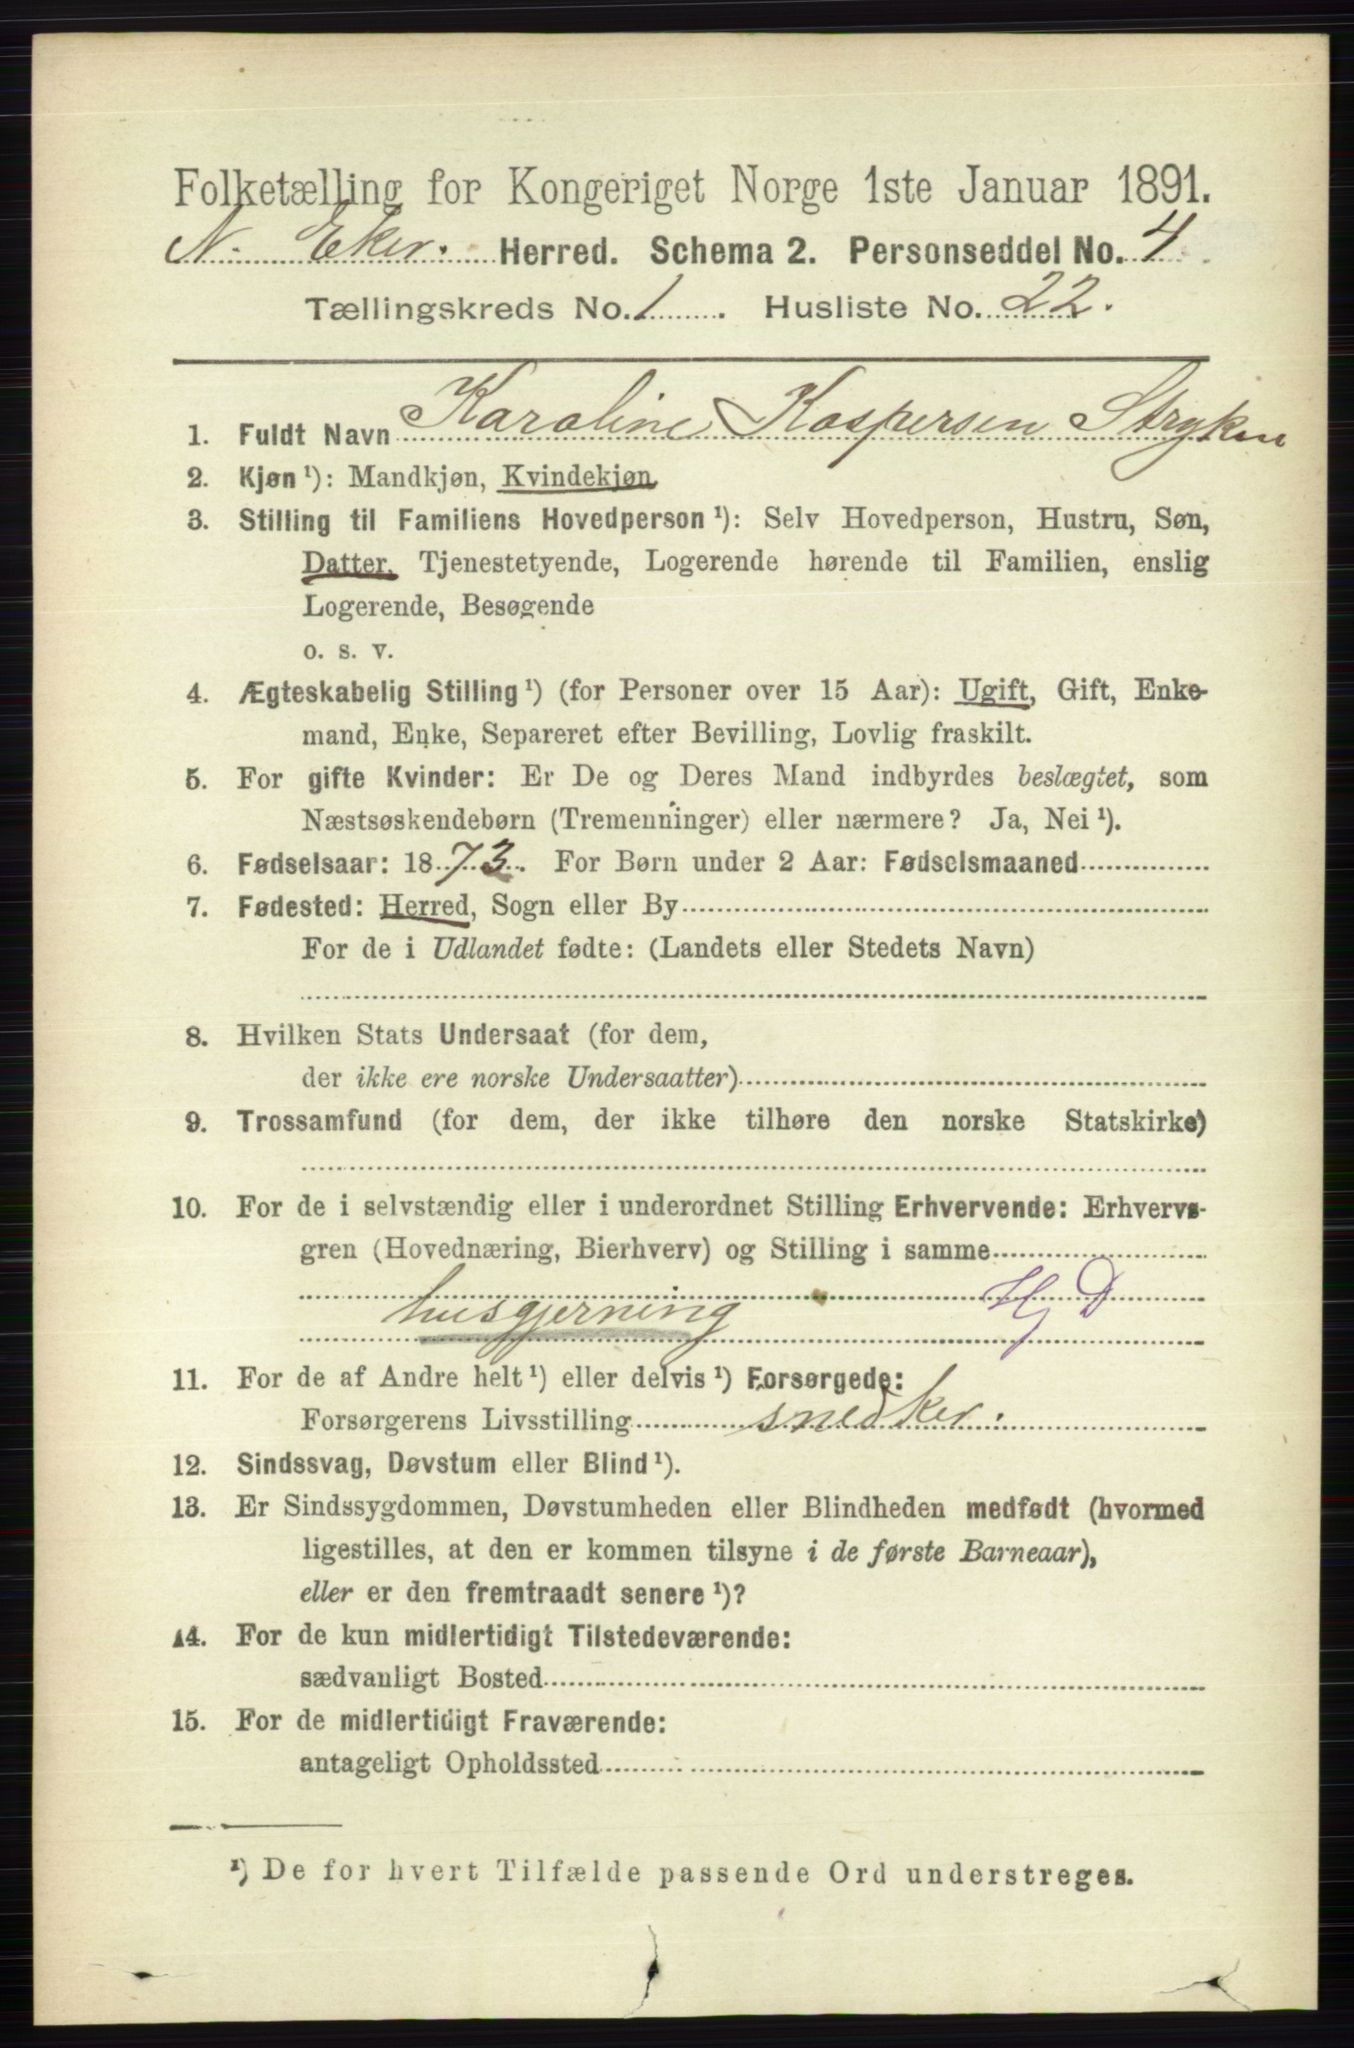 Folketælling for Kongeriget Norge 1ste Januar 1891.
N. Eker. Herred. Schema 2. Personseddel No. 4
Tællingskreds No. 1. Husliste No. 22.
1. Fuldt Navn Karoline Kaspersen Stryken
2. Kjøn ¹): Mandkjøn, Kvindekjøn
3. Stilling til Familiens Hovedperson ¹): Selv Hovedperson, Hustru, Søn,
Datter, Tjenestetyende, Logerende hørende til Familien, enslig
Logerende, Besøgende
o. s. v.
4. Ægteskabelig Stilling ¹) (for Personer over 15 Aar): Ugift, Gift, Enke-
mand, Enke, Separeret efter Bevilling, Lovlig fraskilt.
5. For gifte Kvinder: Er De og Deres Mand indbyrdes beslægtet, som
Næstsøskendebørn (Tremenninger) eller nærmere? Ja, Nei ¹).
6. Fødselsaar: 1873. For Børn under 2 Aar: Fødselsmaaned
7. Fødested: Herred, Sogn eller By
For de i Udlandet fødte: (Landets eller Stedets Navn)
8. Hvilken Stats Undersaat (for dem,
der ikke ere norske Undersaatter)
9. Trossamfund (for dem, der ikke tilhøre den norske Statskirke)
10. For de i selvstændig eller i underordnet Stilling Erhvervende: Erhvervs-
gren (Hovednæring, Bierhverv) og Stilling i samme
husgjerning Hj D
11. For de af Andre helt ¹) eller delvis ¹) Forsørgede:
Forsørgerens Livsstilling snedker.
12. Sindssvag, Døvstum eller Blind ¹).
13. Er Sindssygdommen, Døvstumheden eller Blindheden medfødt (hvormed
ligestilles, at den er kommen tilsyne i de første Barneaar),
eller er den fremtraadt senere ¹)?
14. For de kun midlertidigt Tilstedeværende:
sædvanligt Bosted
15. For de midlertidigt Fraværende:
antageligt Opholdssted
¹) De for hvert Tilfælde passende Ord understreges.